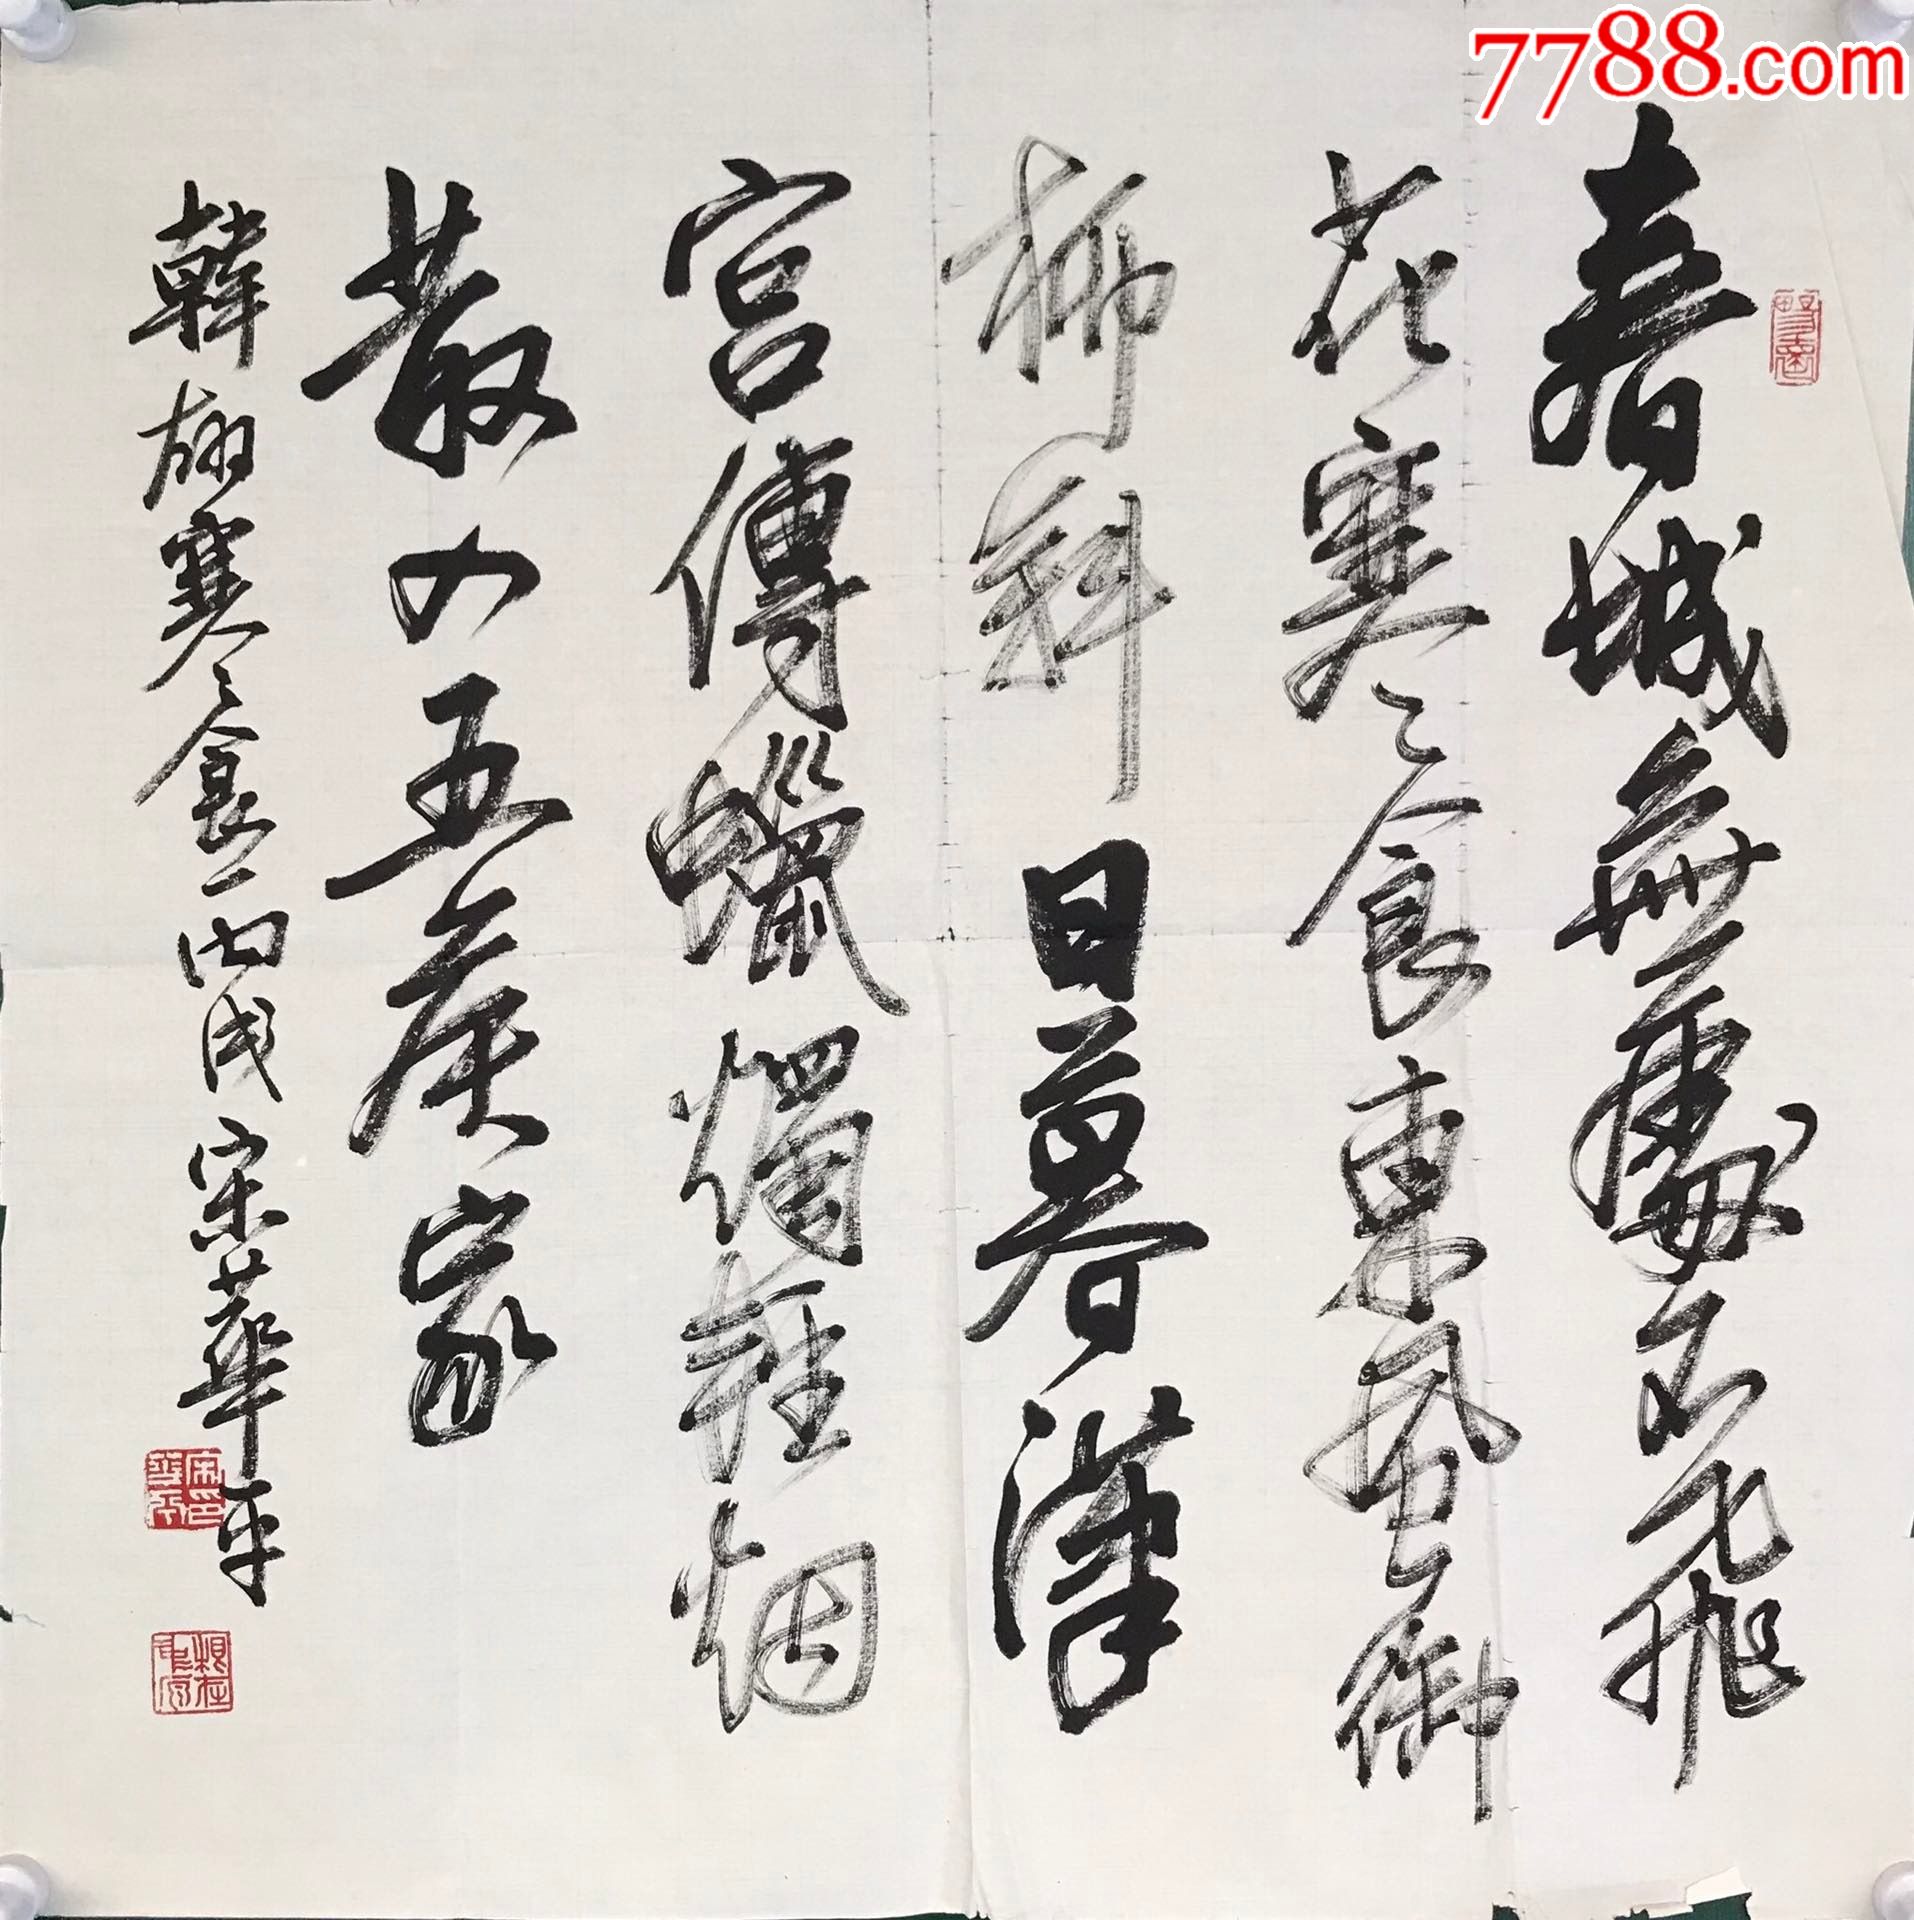 7788.com
春城無處不飛
花寒食東風御
柳斜日暮漢
宮傳蠟燭輕烟
散入五矦家
韓翃寒食一丙戌宋華平